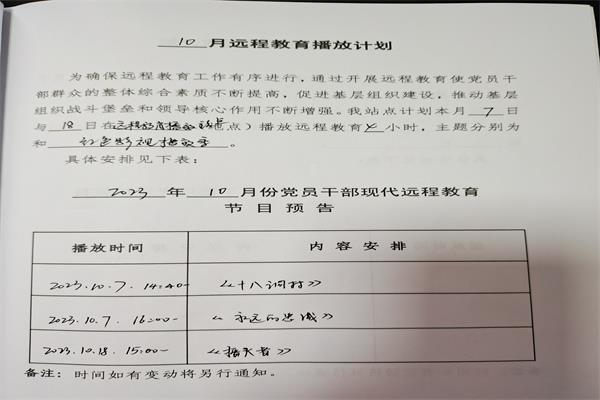 10 月远程教育播放计划
为确保远程教育工作有序进行，通过开展远程教育使党员干
部群众的整体综合素质不断提高，促进基层组织建设，推动基层
组织战斗堡垒和领导核心作用不断增强。我站点计划本月 7 日
与 18 日在远程教育播放站点(地点）播放远程教育 4 小时，主题分别为
和 红色影视播放季 。
具体安排见下表：
2023 年 10 月份党员干部现代远程教育
节目预告
播放时间 内容安排
2023.10.7. 14:40- 《十八洞村》
2023.10.7. 16:00- 《永远的忠诚》
2023.10.18. 15:00- 《
》
备注： 时间如有变动将另行通知。